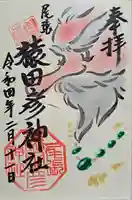 奉拝
尾張
猿田彦神社
令和四年二月十一日